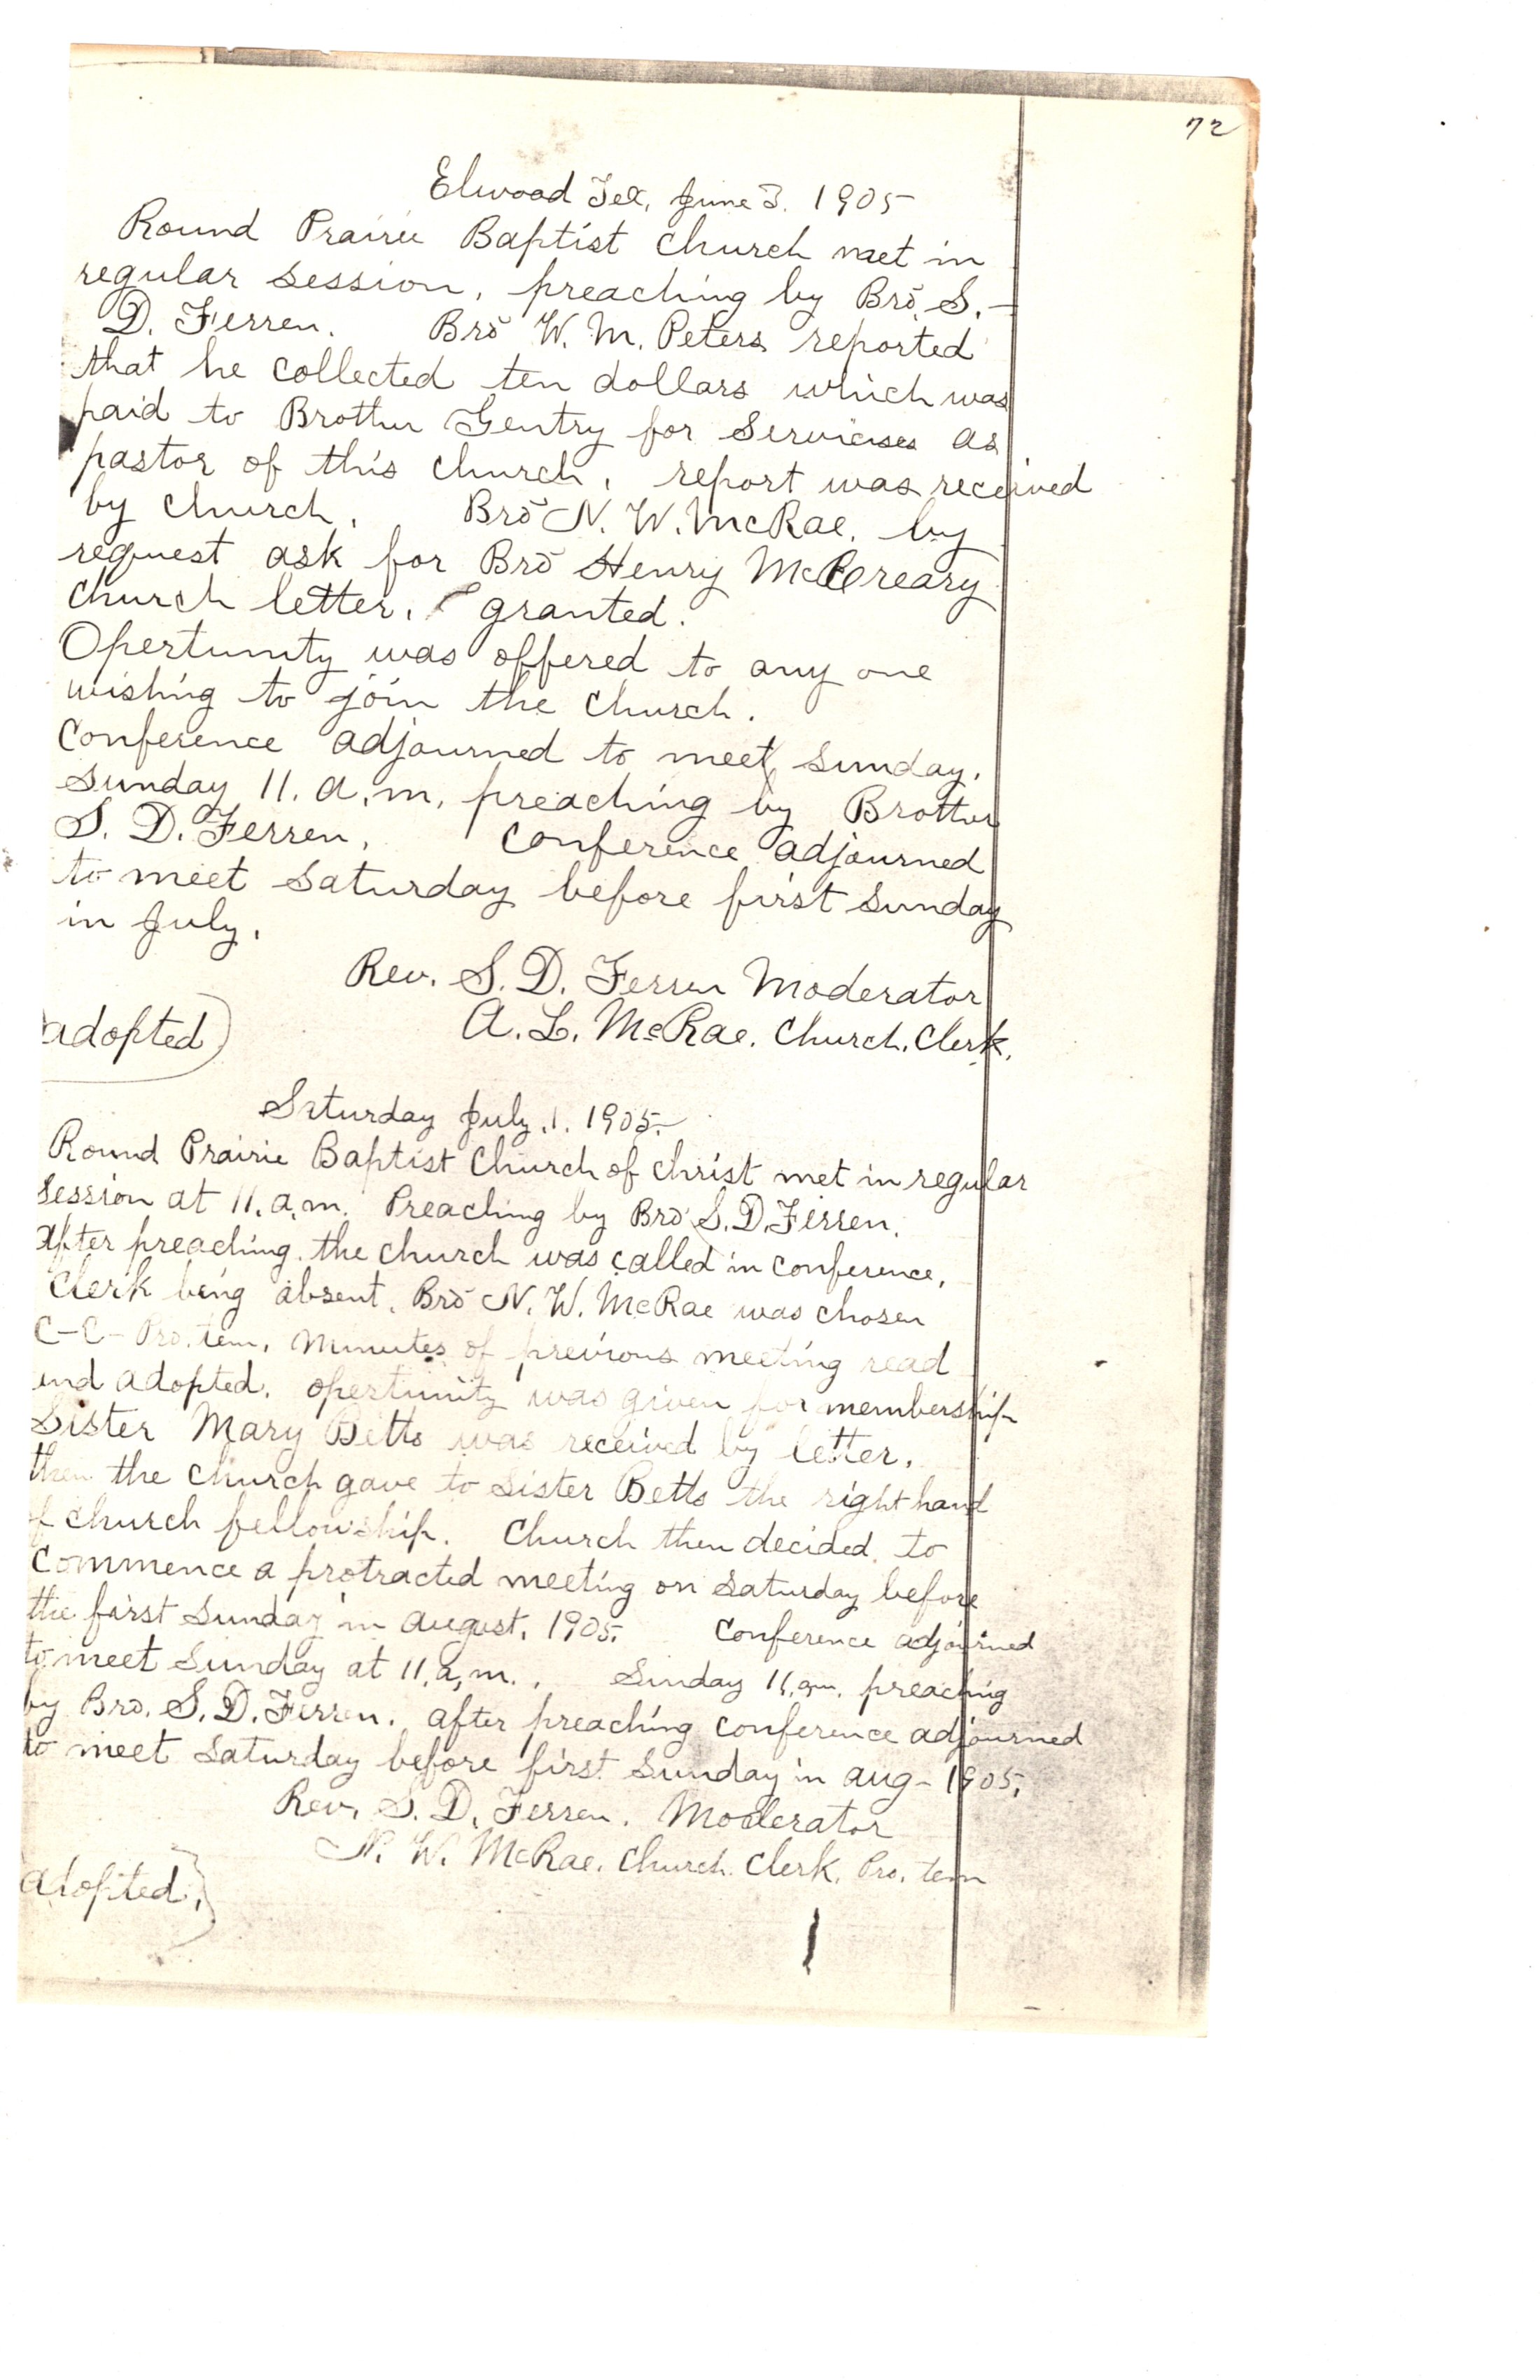 72
Elwood Tex, June 3. 1905
Round Prairie Baptist Church met in
regular session, preaching by Bro. S.-
D. Ferren. Bro W. M. Peters reported
that he collected ten dollars which was
paid to Brother Gentry for services as
pastor of this church, report was received
by church. Bro N. W. McRae. by
request ask for Bro Henry McCreary
church letter. granted.
Opertunity was offered to any one
wishing to join the church.
Conference adjourned to meet Sunday.
Sunday 11. a.m. preaching by Brother
S. D. Ferren. Conference adjourned
to meet Saturday before first Sunday
in July.
Rev. S. D. Ferren Moderator
A. L. McRae. Church. Clerk.
adopted)
Saturday July. 1. 1905.
Round Prairie Baptist Church of Christ met in regular
session at 11. a.m. Preaching by Bro S. D. Ferren.
After preaching. the church was called in conference,
Clerk being absent. Bro N. W. McRae was chosen
C-C- Pro. tem. Minutes of previous meeting read
and adopted. opertunity was given for membership
Sister Mary Betts was received by letter.
then the church gave to Sister Betts the right hand
of church fellowship. Church then decided to
commence a protracted meeting on Saturday before
the first Sunday in August. 1905. Conference adjourned
to meet Sunday at 11. a.m.. Sunday 11. am. preaching
by Bro. S. D. Ferren. after preaching conference adjourned
to meet Saturday before first Sunday in aug- 1905,
Rev. S. D. Ferren. Moderator
N. W. McRae. Church. Clerk. Pro. tem
adopted.}